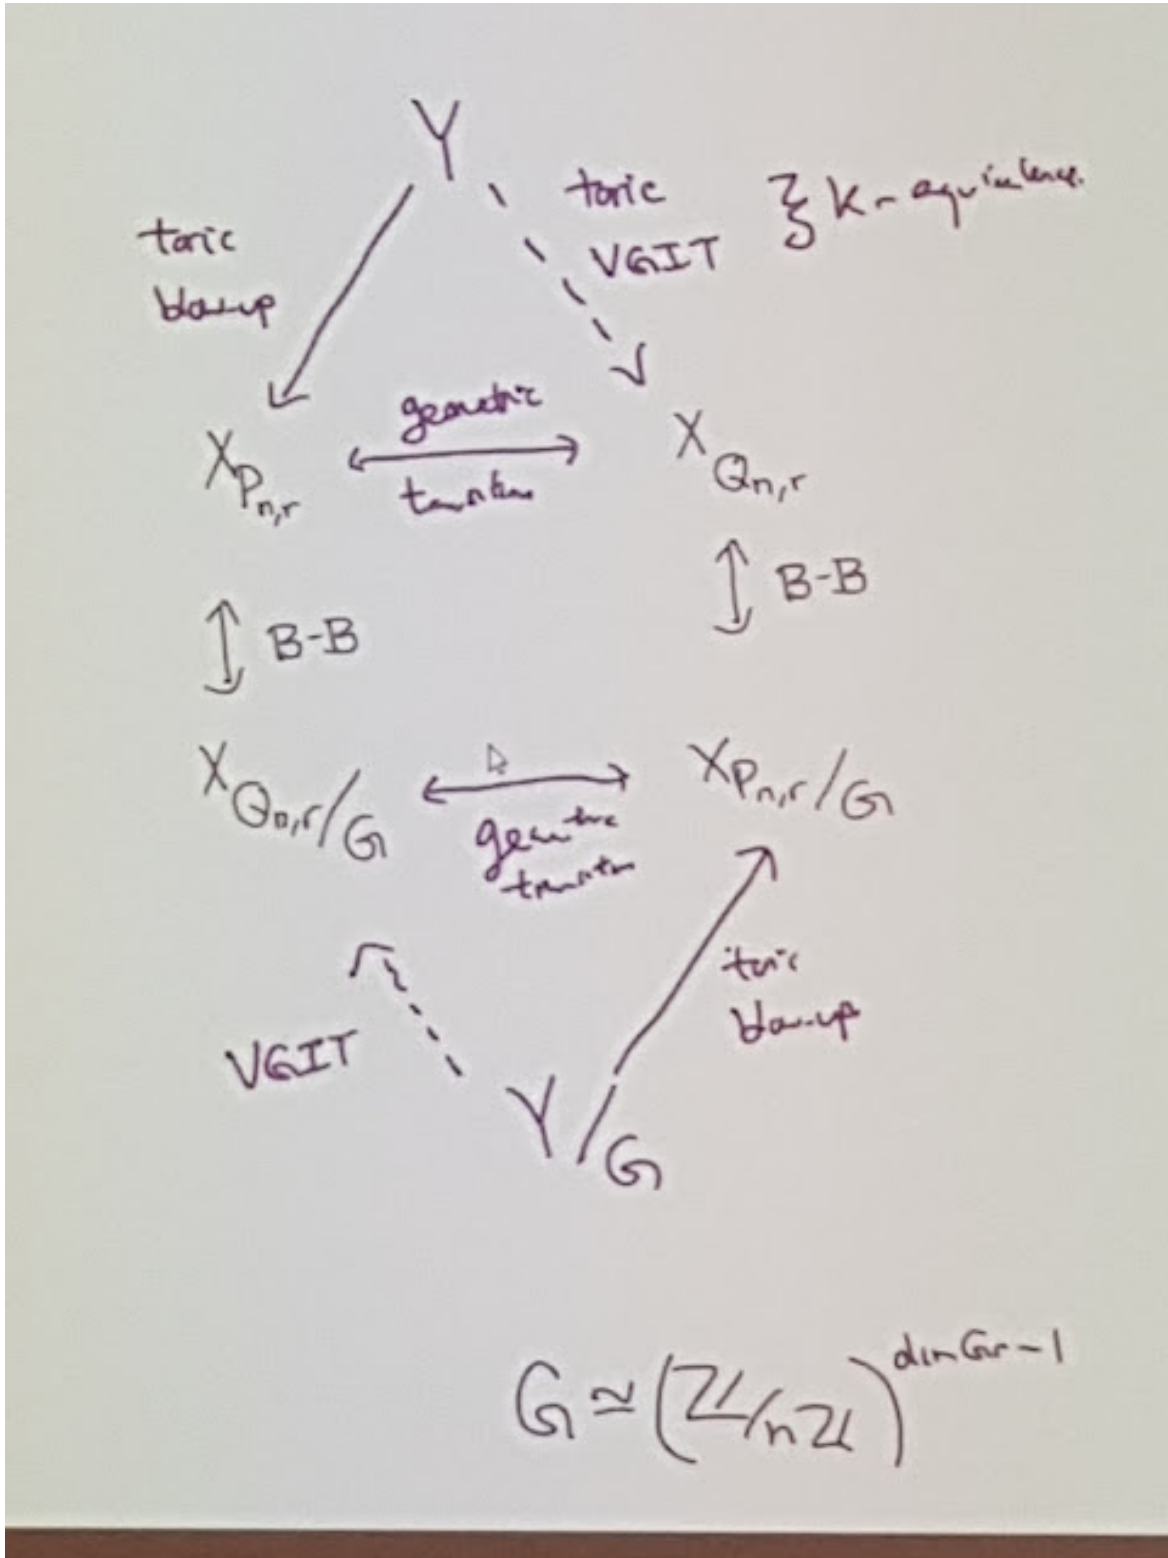 Y
toric
blow-up
toric
VGIT
} K-equivalence.
X_{P_{n,r}}
geometric
transition
X_{Q_{n,r}}
B-B
B-B
X_{Q_{n,r}}/G
geometric
transition
X_{P_{n,r}}/G
VGIT
toric
blow-up
Y/G
G ≃ (ℤ/nℤ)^{dim Gr - 1}